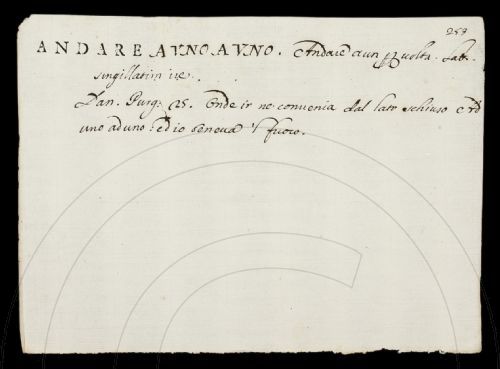 259
ANDARE A VNO A VNO. Andare a un p volta. Lat.
singillatim ire.
Dan. Purg: 25. Onde ir ne convenia dal lato schiuso
uno ad uno: ed io temeva 'l fuoco.